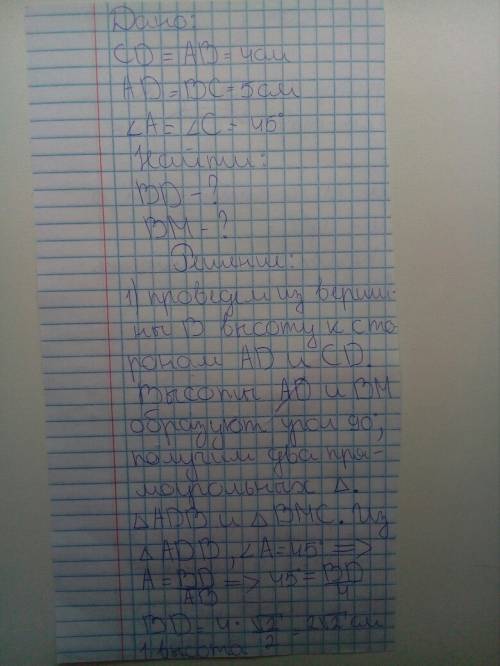 Дано:
CD = AB = 4см
AD = BC = 5см
∠A = ∠C = 45°
Найти:
BD - ?
BM - ?
Решение:
1) проведем из верши-
ны B высоту к сто-
ронам AD и CD.
Высоты AD и BM
образуют угол 90°,
получим два пря-
моугольных △.
△ADB и △BMC. Из
△ADB, ∠A = 45° =>
A = BD/AB => 45 = BD/4
BD = 4 · √2/2 = 2√2 см
1 высота